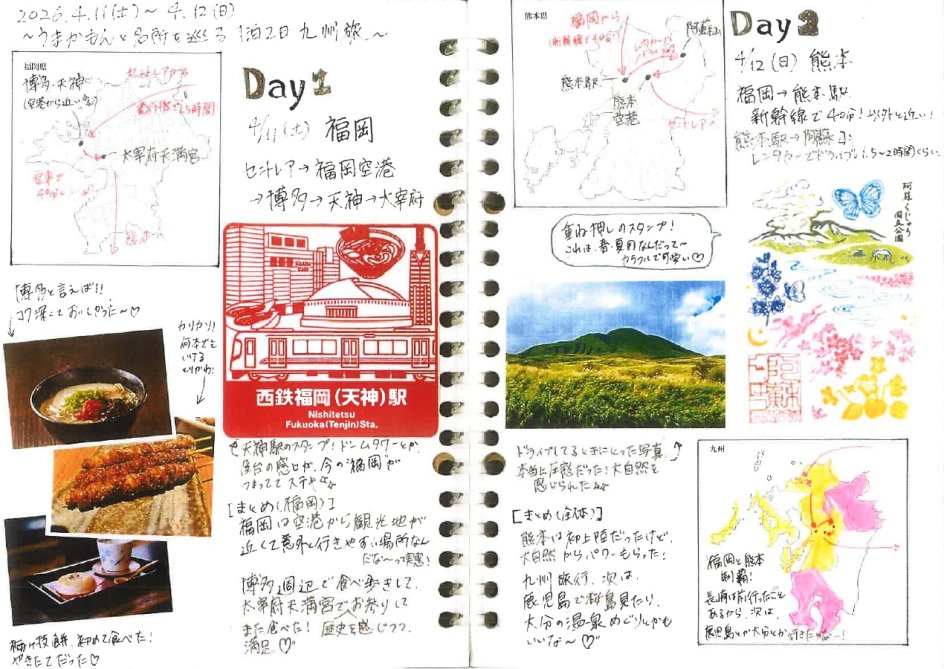 2026.4.11(土)~4.12(日)
~うまかもんと名所を巡る 1泊2日 九州旅~
福岡県
博多・天神
(空港から近い.)
セントレアから
飛行機で1.5時間
太宰府天満宮
電車で
40分
熊本へ
博多と言えば!!
コク深くておいしかった~♡
カリカリ!
何本でも
いける
とりかわ!
梅ヶ枝餅、初めて食べた!
やきたてだった♡
Day1
4/11(土) 福岡
セントレア→福岡空港
→博多→天神→太宰府
西鉄福岡(天神)駅
Nishitetsu
Fukuoka(Tenjin)Sta.
天神駅のスタンプ!ドームタワーとか
屋台の感じが、今の"福岡"が
つまっててステキ
[まとめ(福岡)]
福岡は空港から観光地が
近くて意外と行きやすい場所なん
だな~って実感!
博多周辺で食べ歩きして、
太宰府天満宮でお参りして
また食べた! 歴史を感じつつ、
満足♡
熊本県
福岡から
新幹線で40分!
阿蘇山
レンタカーで
熊本駅
熊本
空港
セントレアへ
Day2
4/12(日) 熊本
福岡→熊本駅
新幹線で40分!意外と近い!
熊本駅→阿蘇山
レンタカーでドライブ♪1.5~2時間くらい.
重ね押しのスタンプ!
これは、春・夏用なんだって~
カラフルで可愛い♡
阿蘇くじゅう
国立公園
阿蘇
ドライブしてるときにとった写真
本当に圧感だった!大自然を
感じられた
[まとめ(全体)]
熊本は初上陸だったけど、
大自然からパワーもらった!
九州旅行、次は、
鹿児島で桜島見たり、
大分の温泉めぐりとかも
いいな~♡
九州
福岡と熊本
制覇!
長崎は前行ったこと
あるから、次は、
鹿児島とか大分とか行きたいな~!